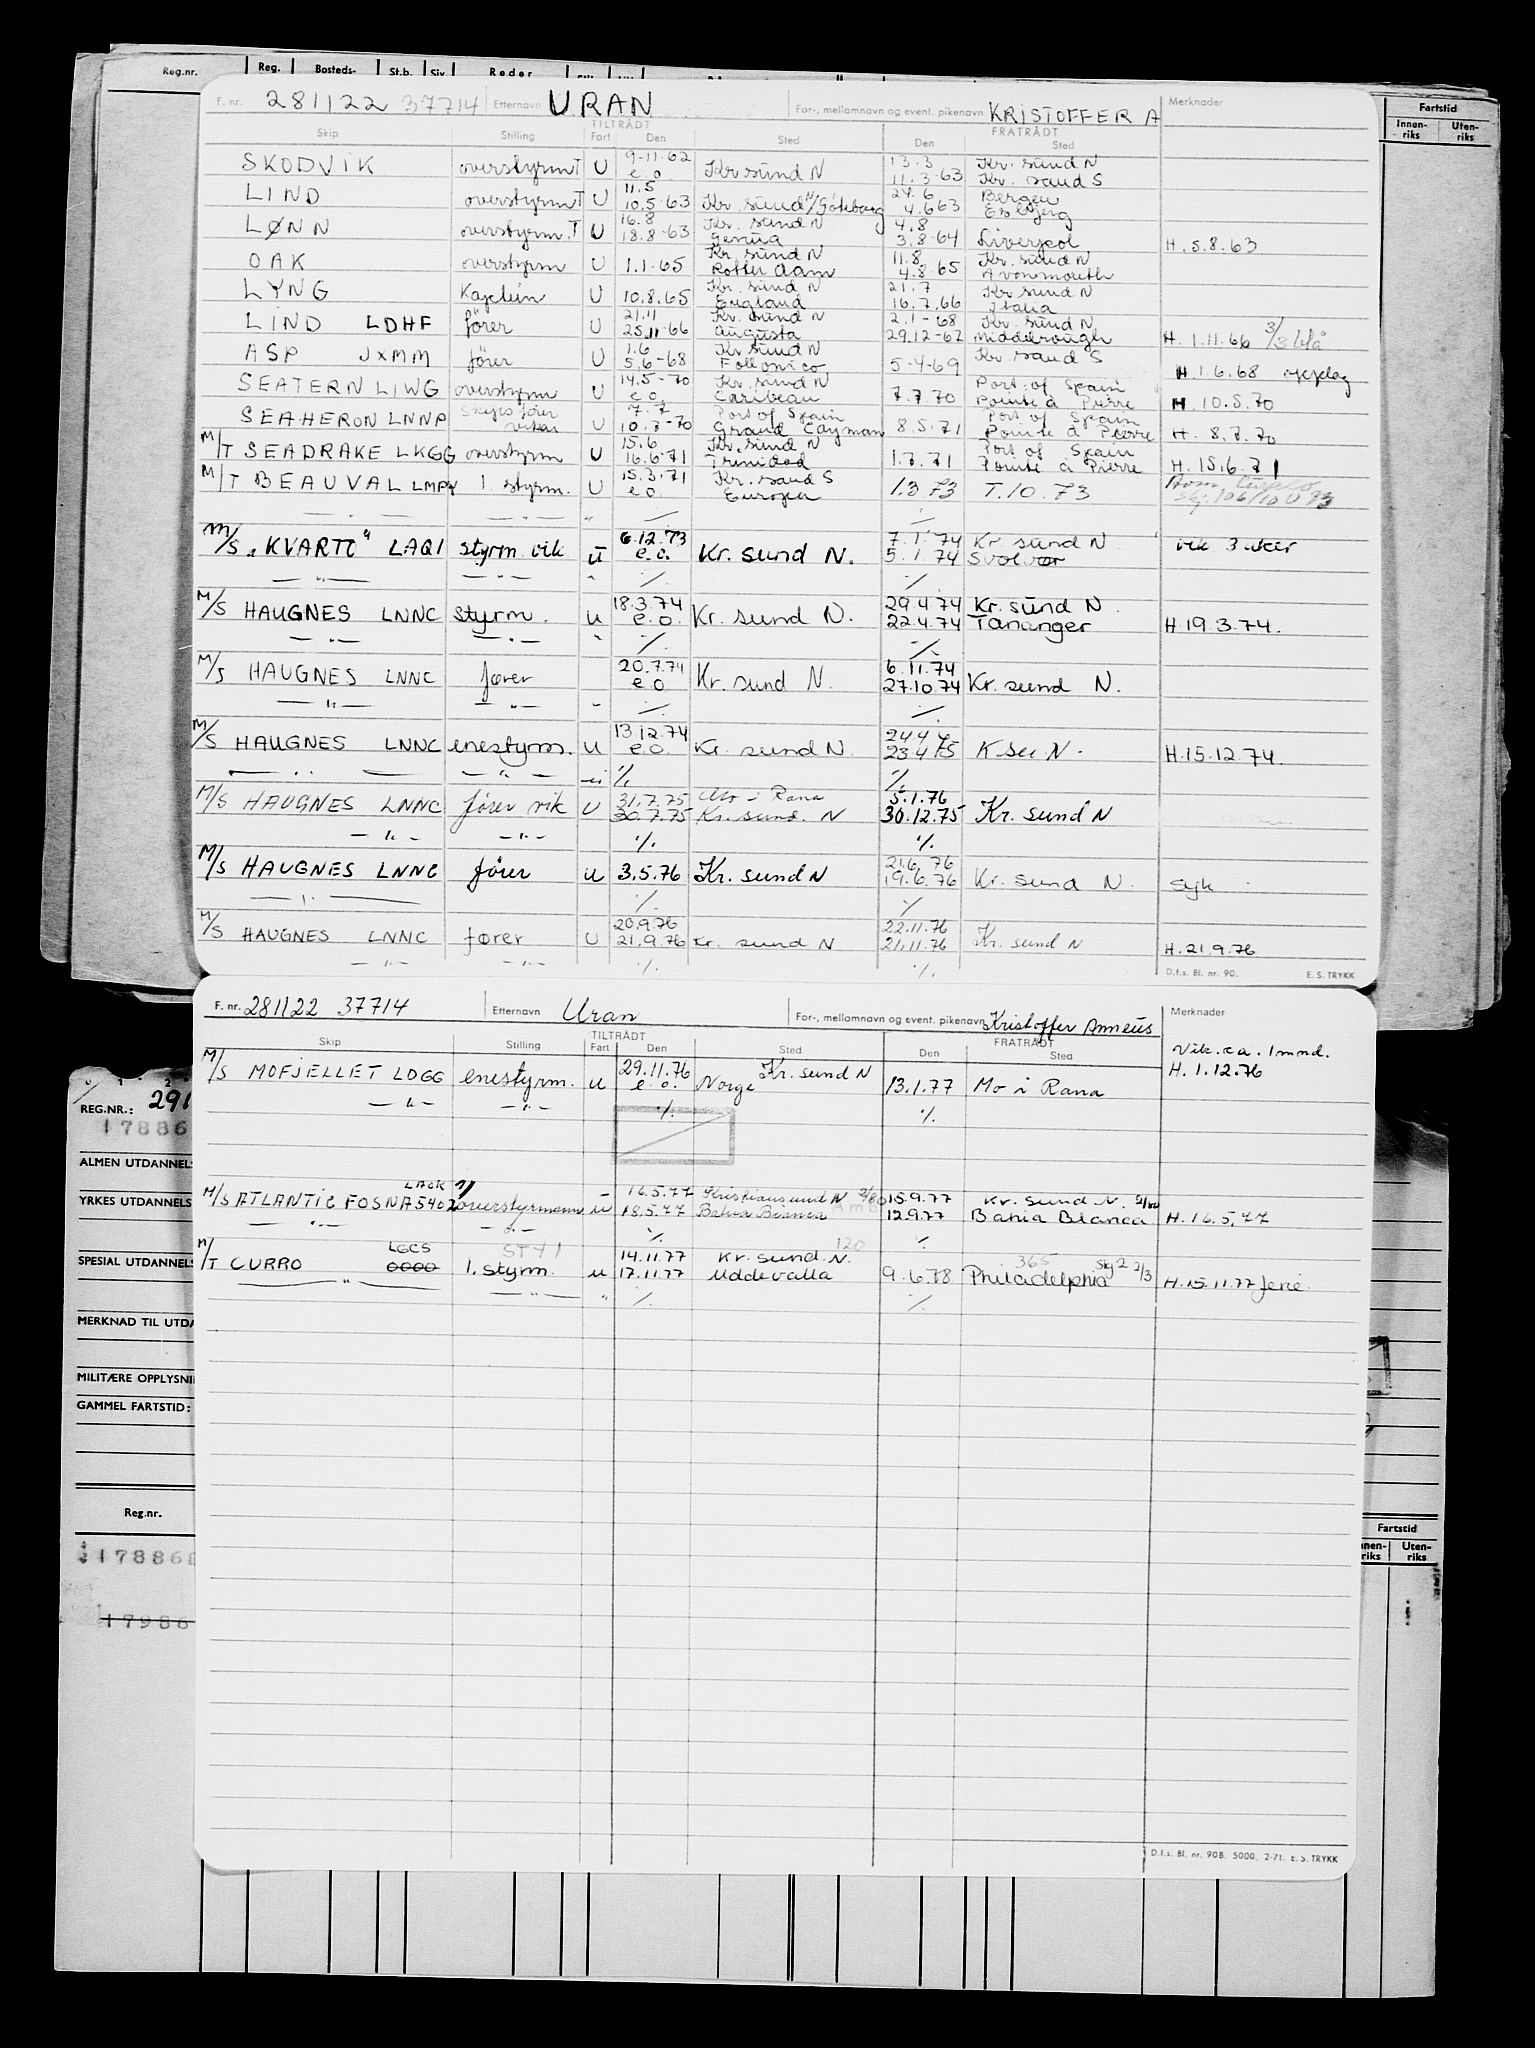 Reg.nr. Reg. Bosteds- St.b. Siv. Reder Fartstid
Innen-riks Uten-riks
F. nr. 281122 37714 Etternavn URAN For-, mellomnavn og event. pikenavn KRISTOFFER A Merknader
TILTRÅDT FRATRÅDT
Skip Stilling Fart Den Sted Den Sted
9-11-62 13.3 Kr. sund N
SKODVIK overstyrm T U e.o. Kr sund N 11.3-63 Kr. sand S
11.5 24.6 Bergen
LIND overstyrm T U 10.5-63 Kr. sund N/Göteborg 4.663 Esbjerg
16.8 Kr. sund N 4.8
LØNN overstyrm. T U 18.8-63 Genua 3.8-64 Liverpool H.5.8.63
Kr sund N 11.8 Kr. sund N
OAK overstyrm U 1.1-65 Rotterdam 4.8-65 Avonmouth
Kr. sund N 21.7 Kr sund N
LYNG Kaptein U 10.8.65 England 16.7.66 Italia
21.11 Kr. sund N 2.1-68 Kr. sund N
LIND LDHF fører U 25.11-66 Augusta 29.12-67 Middlesrough H. 1.11.66 3/3 blå
1.6 Kr sund N Kr sand S
ASP JXMM fører U 5.6-68 Follonico 5-4-69 H.1.6.68
14.5-70 Kr. sund N Port of Spain
SEATERN LIWG overstyrm U e.o. Caribean 7.7.70 Pointe à Pierre H. 10.5.70
Skips fører 7.7 Port of Spain Port of Spain
SEAHERON LNNP vikar U 10.7-70 Grand Cayman 8.5.71 Pointe à Pierre H. 8.7.70
15.6 Kr. sund N Port of Spain
M/T SEADRAKE LKGG overstyrm U 16.6-71 Trinidad 1.7.71 Pointe à Pierre H.15.6.71
15.3.71 Kr. sand S
M/T BEAUVAL LMPY 1. styrm. U e.o. Europa 1.3.73 T.10.73
— " — — " — " ./. ./.
6.12.73 7.1.74 Kr sund N
M/S "KVARTO" LAQI styrm vik u e.o. Kr. sund N. 5.1.74 Svolvær vik 3 uker
— " — — " — " ./. ./.
18.3.74 29.4.74 Kr. sund N.
M/S HAUGNES LNNC styrm. u e.o. Kr. sund N. 22.4.74 Tananger H.19.3.74.
— " — — " — " ./. ./.
20.7.74 6.11.74
M/S HAUGNES LNNC fører e.o Kr. sund N. 27.10.74 Kr. sund N.
— " — — " — " ./. ./.
13.12.74 24.4
M/S HAUGNES LNNC enestyrm. u e.o. Kr. sund N. 23.4.75 K su N. H.15.12.74.
— " — — " — " ./. ./.
31.7.75 Mo i Rana 5.1.76
M/S HAUGNES LNNC fører vik U 30.7.75 Kr. sund. N 30.12.75 Kr. sund N
— " — — " — ./. ./.
21.6.76
M/S HAUGNES LNNC fører u 3.5.76 Kr. sund N 19.6.76 Kr. sund N. syk
— " — ./. ./.
20.9.76 22.11.76
M/S HAUGNES LNNC fører U 21.9.76 Kr. sund N 21.11.76 Kr. sund N H.21.9.76
— " — — " — ./. ./.
D.f.s. Bl. nr. 90. E. S. TRYKK
F. nr. 281122 37714 Etternavn Uran For-, mellomnavn og event. pikenavn Kristoffer Anneus Merknader
TILTRÅDT FRATRÅDT
Skip Stilling Fart Den Sted Den Sted
Vik. ca. 1 mnd.
29.11.76 Kr. sund N H. 1.12.76
M/S MOFJELLET LDGG enestyrm. u e.o. Norge 13.1.77 Mo i Rana
— " — — " — ./. ./.
LACK 16.5.77 Kristiansund N 2/80 15.9.77 Kr. sund N. 2/80
M/S ATLANTIC FOSNA 5402 overstyrmann u 18.5.77 Bahia Blanca 12.9.77 Bahia Blanca H.16.5.77
— " — — " — ./. ./.
LGCS STY 1 14.11.77 Kr. sund. N. 120 365 2/3
M/T CURRO 0000 1. styrm. u 17.11.77 Uddevalla 9.6.78 Philadelphia H.15.11.77 ferie.
— " — — " — " ./. ./.
D.f.s. Bl. nr. 90B. 5000, 2-71. E. S. TRYKK
REG.NR.: 291
17886
ALMEN UTDANNEL
YRKES UTDANNELS
SPESIAL UTDANNELS
MERKNAD TIL UTDA
MILITÆRE OPPLYSNI
GAMMEL FARTSTID:
Reg.nr. Fartstid
nnen-riks Uten-riks
178868
17986